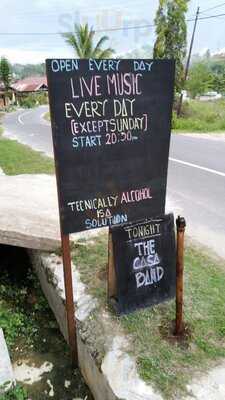 OPEN EVERY DAY
LIVE MUSIC
EVERY DAY
(EXCEPT SUNDAY)
START 20:30 PM
TECNICALLY ALCOHOL
IS A
SOLUTION
TONIGHT
THE
CASA
BAND